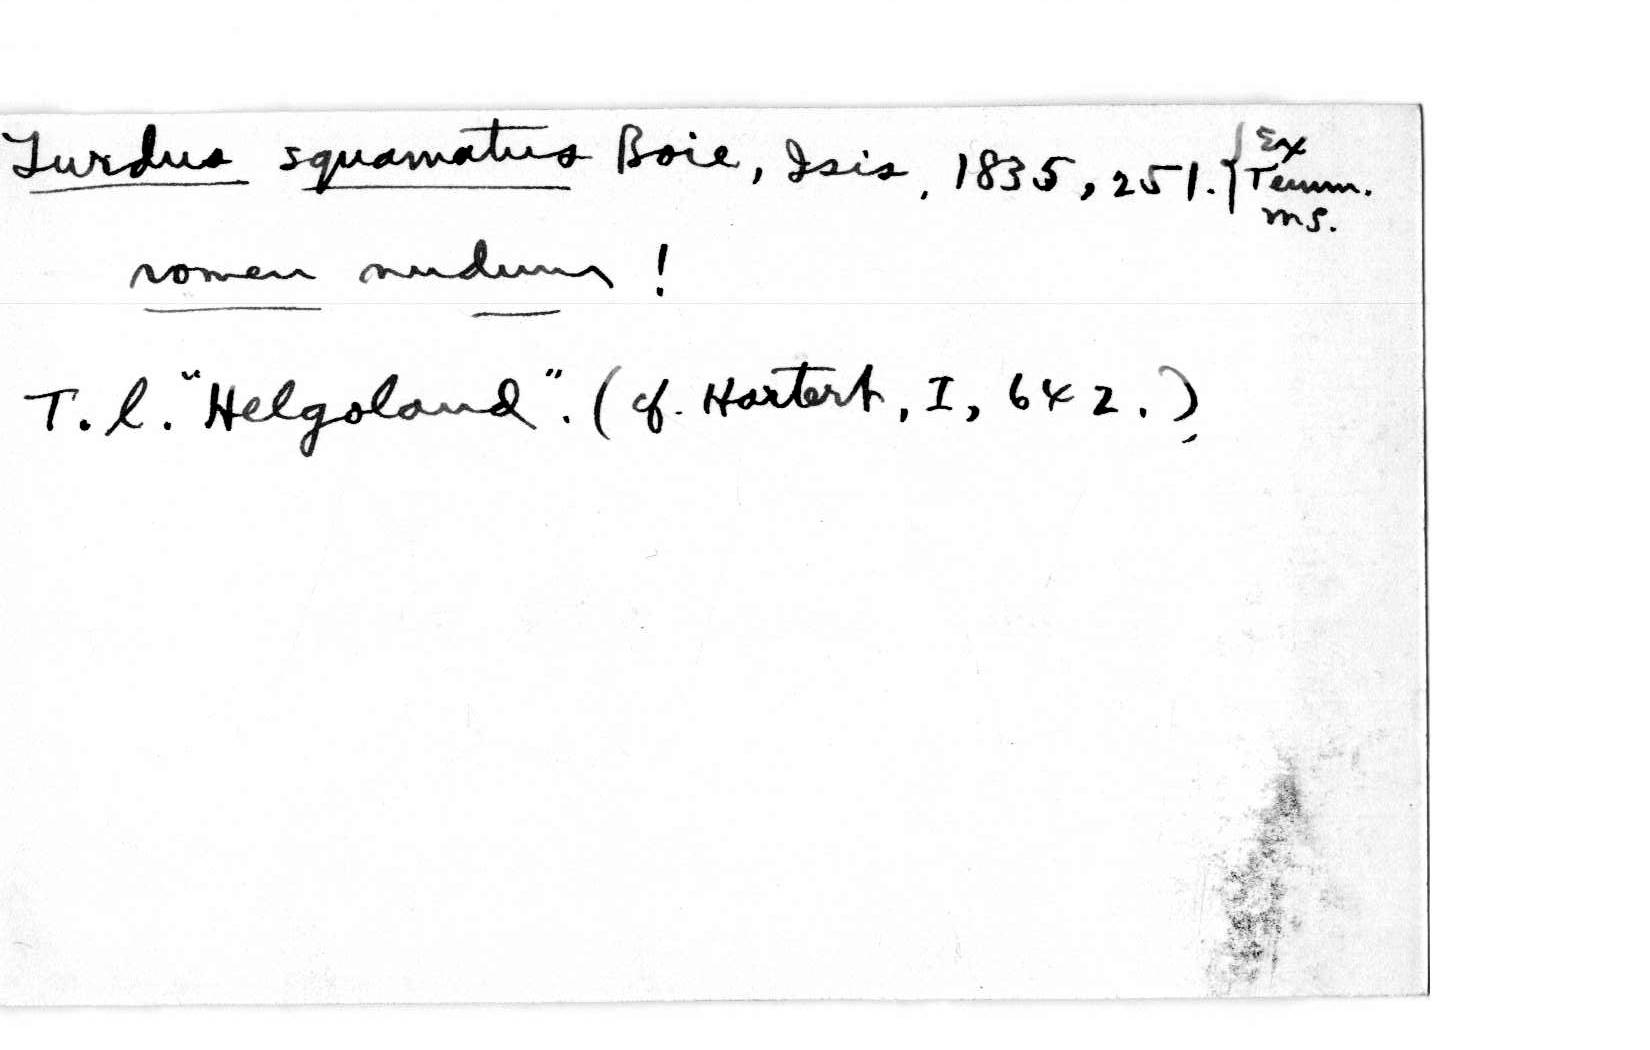 Turdus squamatus Boie, Isis, 1835, 251. {Ex Temm. ms.
nomen nudum!
T. l. "Helgoland". (cf. Hartert, I, 642.)